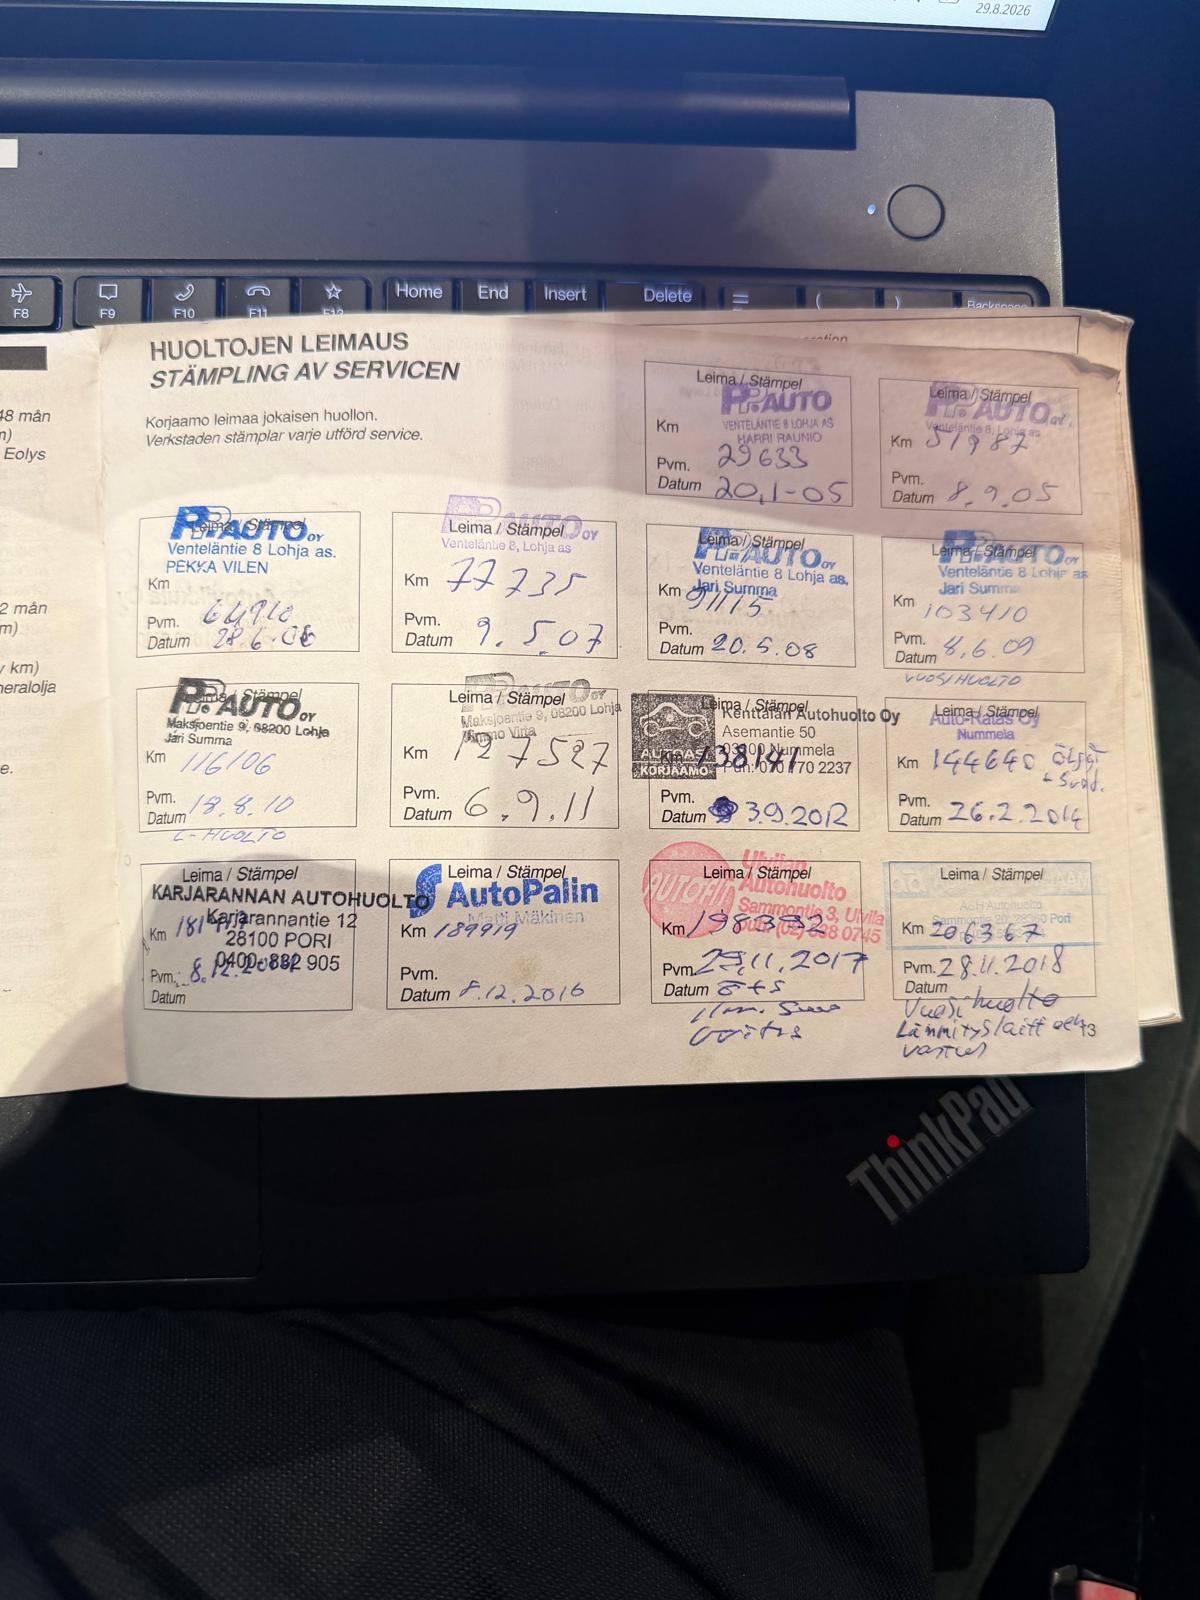 29.8.2026
F8
F9
F10
F11
F12
Home
End
Insert
Delete
Backspace
48 mån
Eolys
2 mån
km)
neralolja
HUOLTOJEN LEIMAUS
STÄMPLING AV SERVICEN
Korjaamo leimaa jokaisen huollon.
Verkstaden stämplar varje utförd service.
Leima / Stämpel
PP.AUTO
VENTELÄNTIE 8 LOHJA AS
HARRI RAUNIO
Km
29633
Pvm.
Datum 20.1-05
Leima / Stämpel
PP.AUTO OY
Venteläntie 8, Lohja as
Km 51987
Pvm.
Datum 8.9.05
Leima / Stämpel
PP.AUTO OY
Venteläntie 8 Lohja as.
PEKKA VILEN
Km
64910
Pvm.
Datum 28.6.06
Leima / Stämpel
PP.AUTO OY
Venteläntie 8, Lohja as
Km 77735
Pvm.
Datum 9.5.07
Leima / Stämpel
PP.AUTO OY
Venteläntie 8 Lohja as.
Jari Summa
Km 91115
Pvm.
Datum 20.5.08
Leima / Stämpel
PP.AUTO OY
Venteläntie 8 Lohja as
Jari Summa
Km 103410
Pvm.
Datum 8.6.09
VUOSIHUOLTO
Leima / Stämpel
PP.AUTO OY
Maksjoentie 9, 08200 Lohja
Jari Summa
Km 116106
Pvm.
Datum 18.8.10
L-HUOLTO
Leima / Stämpel
PP.AUTO OY
Maksjoentie 9, 08200 Lohja
Km 127527
Pvm.
Datum 6.9.11
Leima / Stämpel
Kenttälän Autohuolto Oy
Asemantie 50
03100 Nummela
Puh: 010 770 2237
KORJAAMO
Km 138141
Pvm.
Datum 3.9.2012
Leima / Stämpel
Nummela
Km 144640
Pvm.
Datum 26.2.2014
Leima / Stämpel
KARJARANNAN AUTOHUOLTO
Karjarannantie 12
28100 PORI
0400-832 905
Km
Pvm.
Datum
Leima / Stämpel
AutoPalin
Matti Mäkinen
Km 189919
Pvm.
Datum 8.12.2016
Leima / Stämpel
AUTOFIT
Ulvilan
Autohuolto
Sammontie 3, Ulvila
Puh. (02) 638 0745
Km
Pvm. 29.11.2017
Datum
Leima / Stämpel
A&H Autohuolto
Km 206367
Pvm. 28.11.2018
Datum
Vuosihuolto
73
ThinkPad